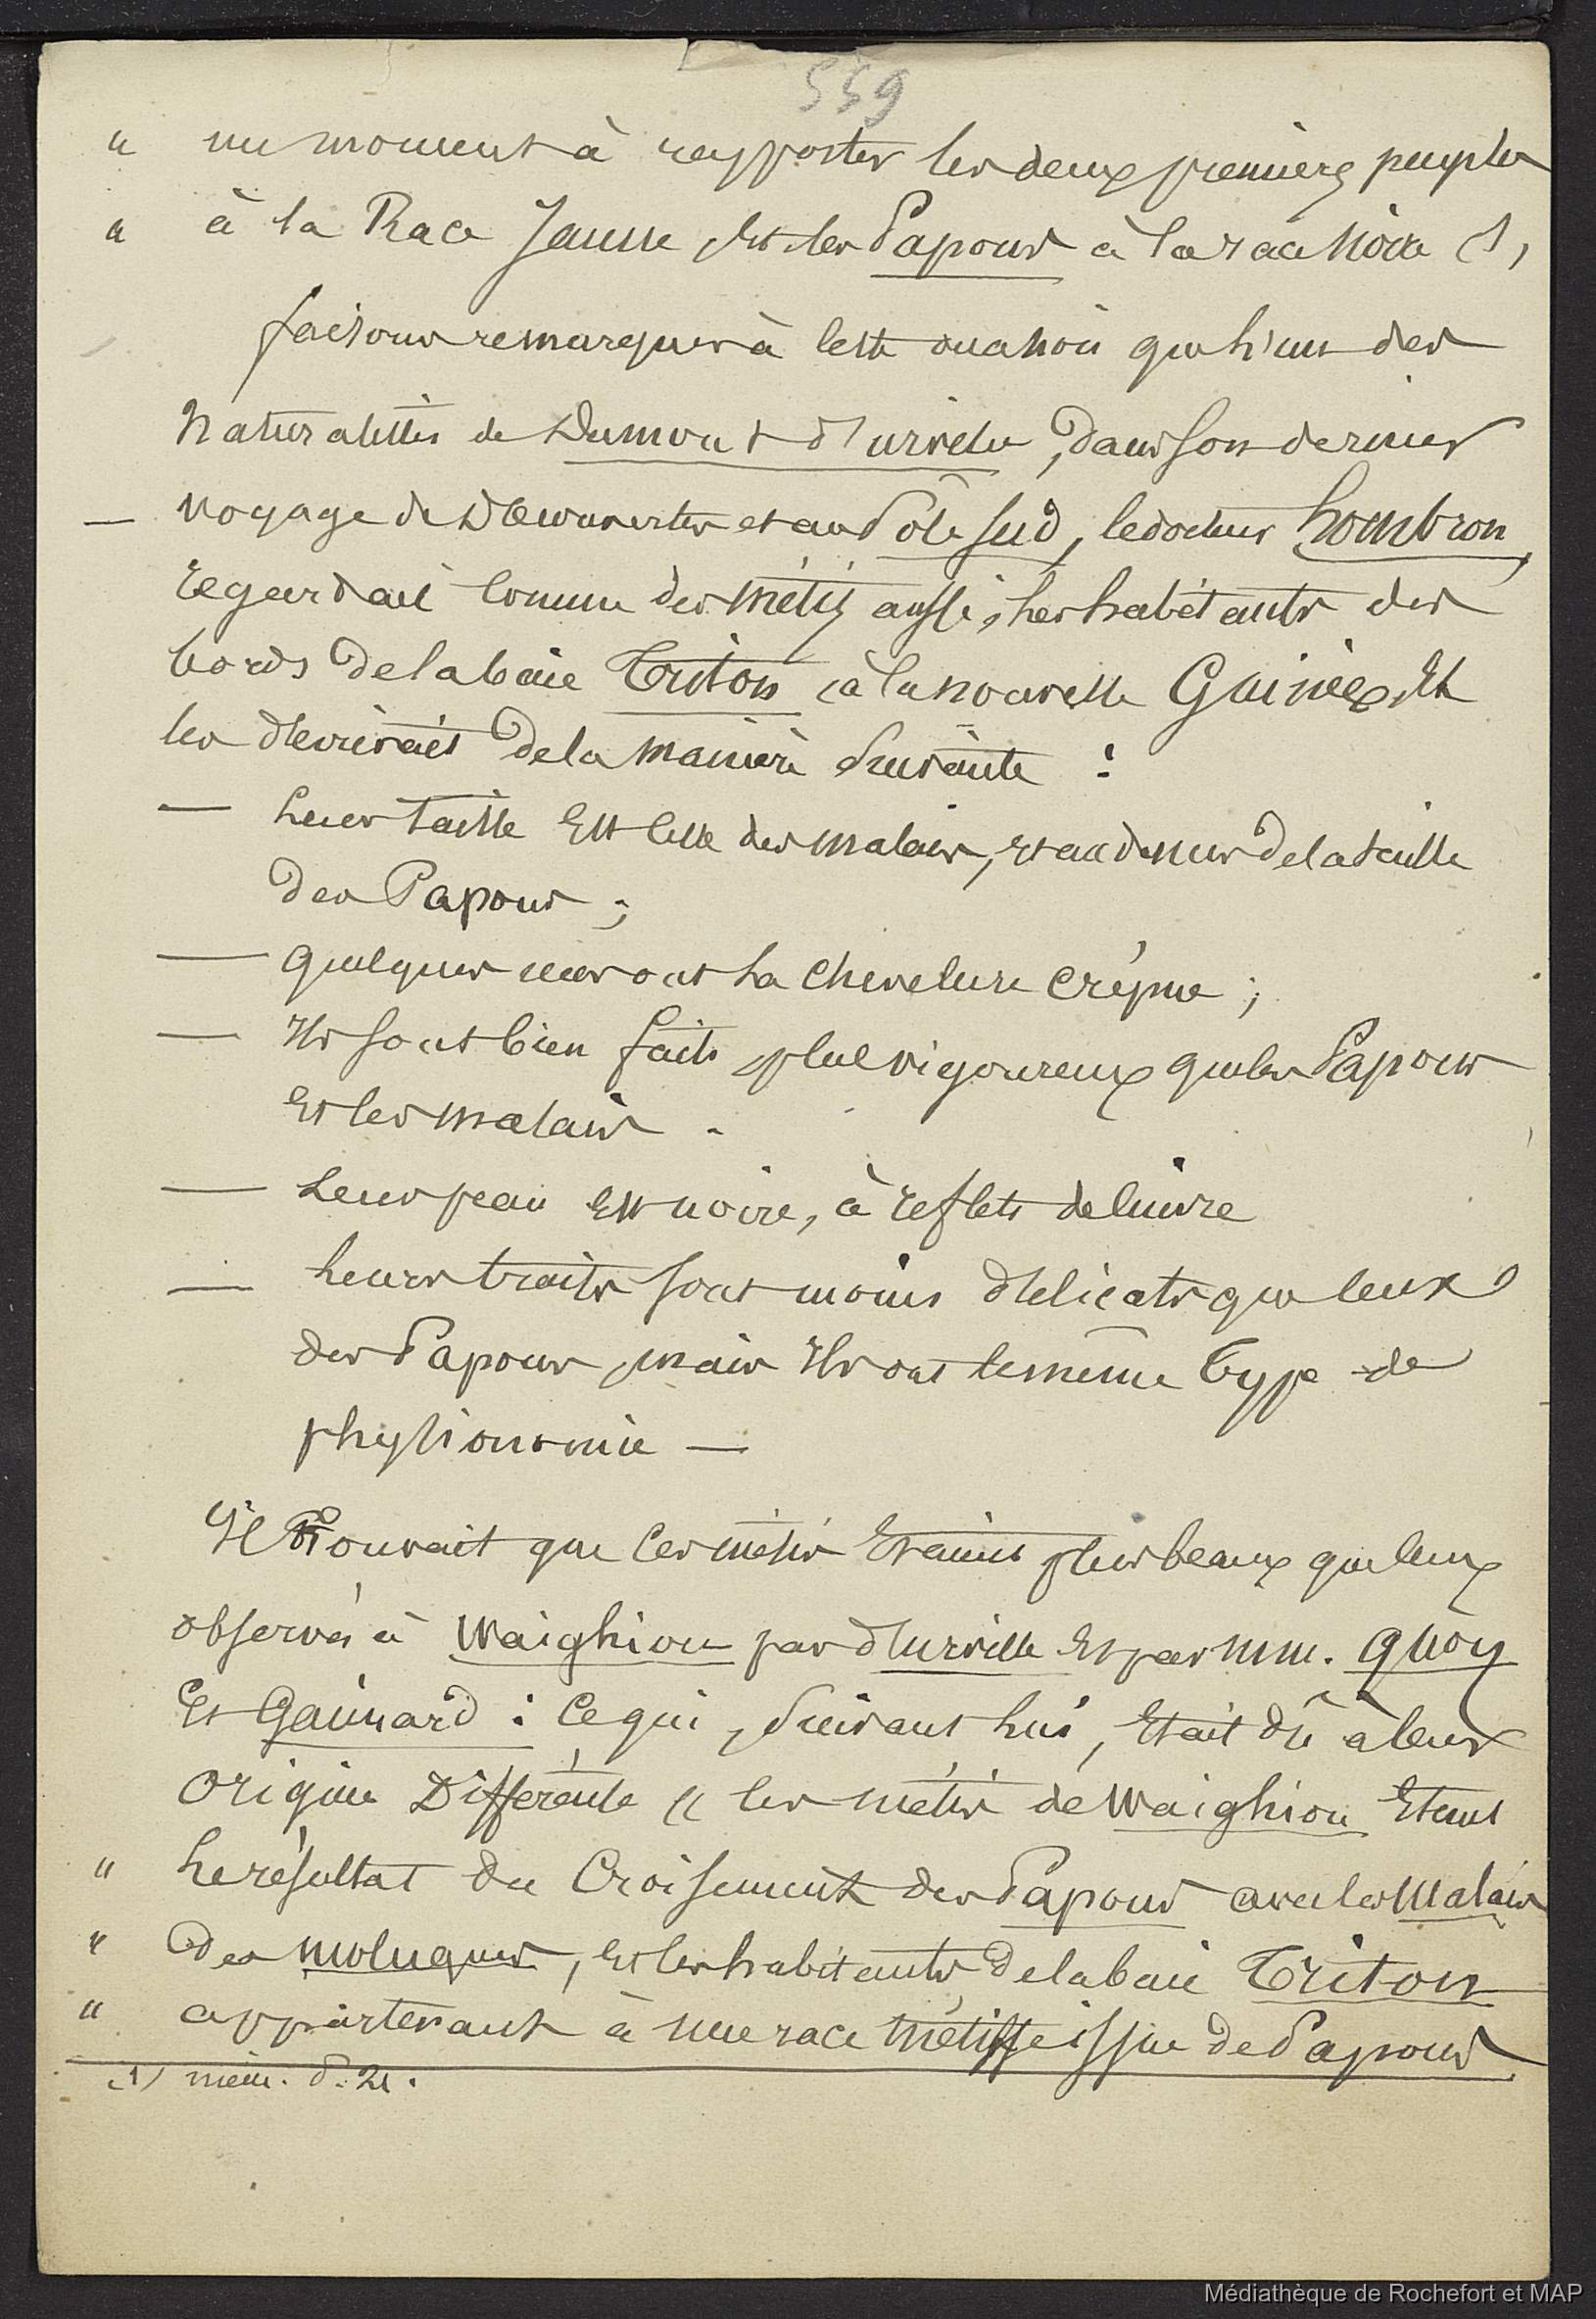 559
" un moment à rapporter les deux premiers peuples
" à la Race Jaune, et les Papous à la race Noire (1)
faisons remarquer à cette occasion que l'un des
Naturalistes de Dumont d'Urville, dans son dernier
— voyage de Découvertes et au Pôle Sud, le docteur Hombron,
regardait comme des métis aussi, les habitants des
bords de la baie Triton à la nouvelle Guinée, Et
les décrivait de la manière suivante :
— Leur taille Est celle des malais, et au dessus de la taille
des Papous ;
— quelques uns ont la chevelure crépue ;
— Ils sont bien faits, plus vigoureux que les Papous
Et les malais .
— Leur peau Est noire, à reflets de cuivre
— Leurs traits sont moins délicats que ceux
des Papous, mais Ils ont le même type de
physionomie —
Il trouvait que ces métis Etaient plus beaux que ceux
observés à Waighiou par d'Urville Et par MM. Quoy
Et Gaimard : ce qui, suivant lui, Etait dû à leur
origine Différente " les métis de Waighiou Etant
" le résultat du Croisement des Papous avec les Malais
" des moluques, et les habitants de la baie Triton
" appartenant à une race métisse issue de Papous
(1) mém. P. 21.
Médiathèque de Rochefort et MAP